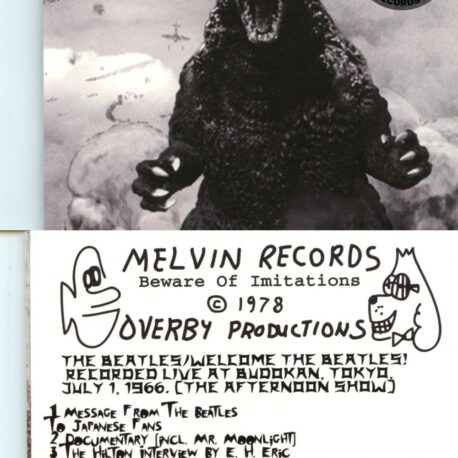 RECORDS
MELVIN RECORDS
Beware Of Imitations
© 1978
OVERBY PRODUCTIONS
THE BEATLES/WELCOME THE BEATLES!
RECORDED LIVE AT BUDOKAN, TOKYO,
JULY 1, 1966. (THE AFTERNOON SHOW)
1 MESSAGE FROM THE BEATLES
TO JAPANESE FANS
2 DOCUMENTARY [INCL. MR. MOONLIGHT]
3 THE HILTON INTERVIEW BY E. H. ERIC